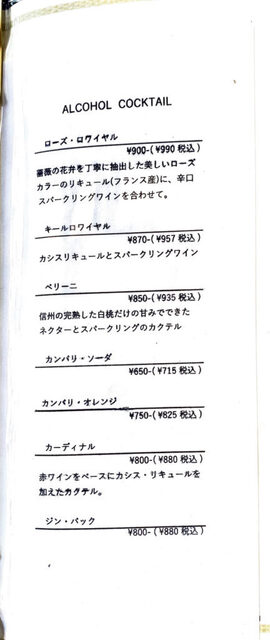 ALCOHOL COCKTAIL
ローズ・ロワイヤル
¥900-(¥990税込)
薔薇の花弁を丁寧に抽出した美しいローズ
カラーのリキュール(フランス産)に、辛口
スパークリングワインを合わせて。
キールロワイヤル
¥870-(¥957税込)
カシスリキュールとスパークリングワイン
ベリーニ
¥850-(¥935税込)
信州の完熟した白桃だけの甘みでできた
ネクターとスパークリングのカクテル
カンパリ・ソーダ
¥650-(¥715税込)
カンパリ・オレンジ
¥750-(¥825税込)
カーディナル
¥800-(¥880税込)
赤ワインをベースにカシス・リキュールを
加えたカクテル。
ジン・バック
¥800-(¥880税込)